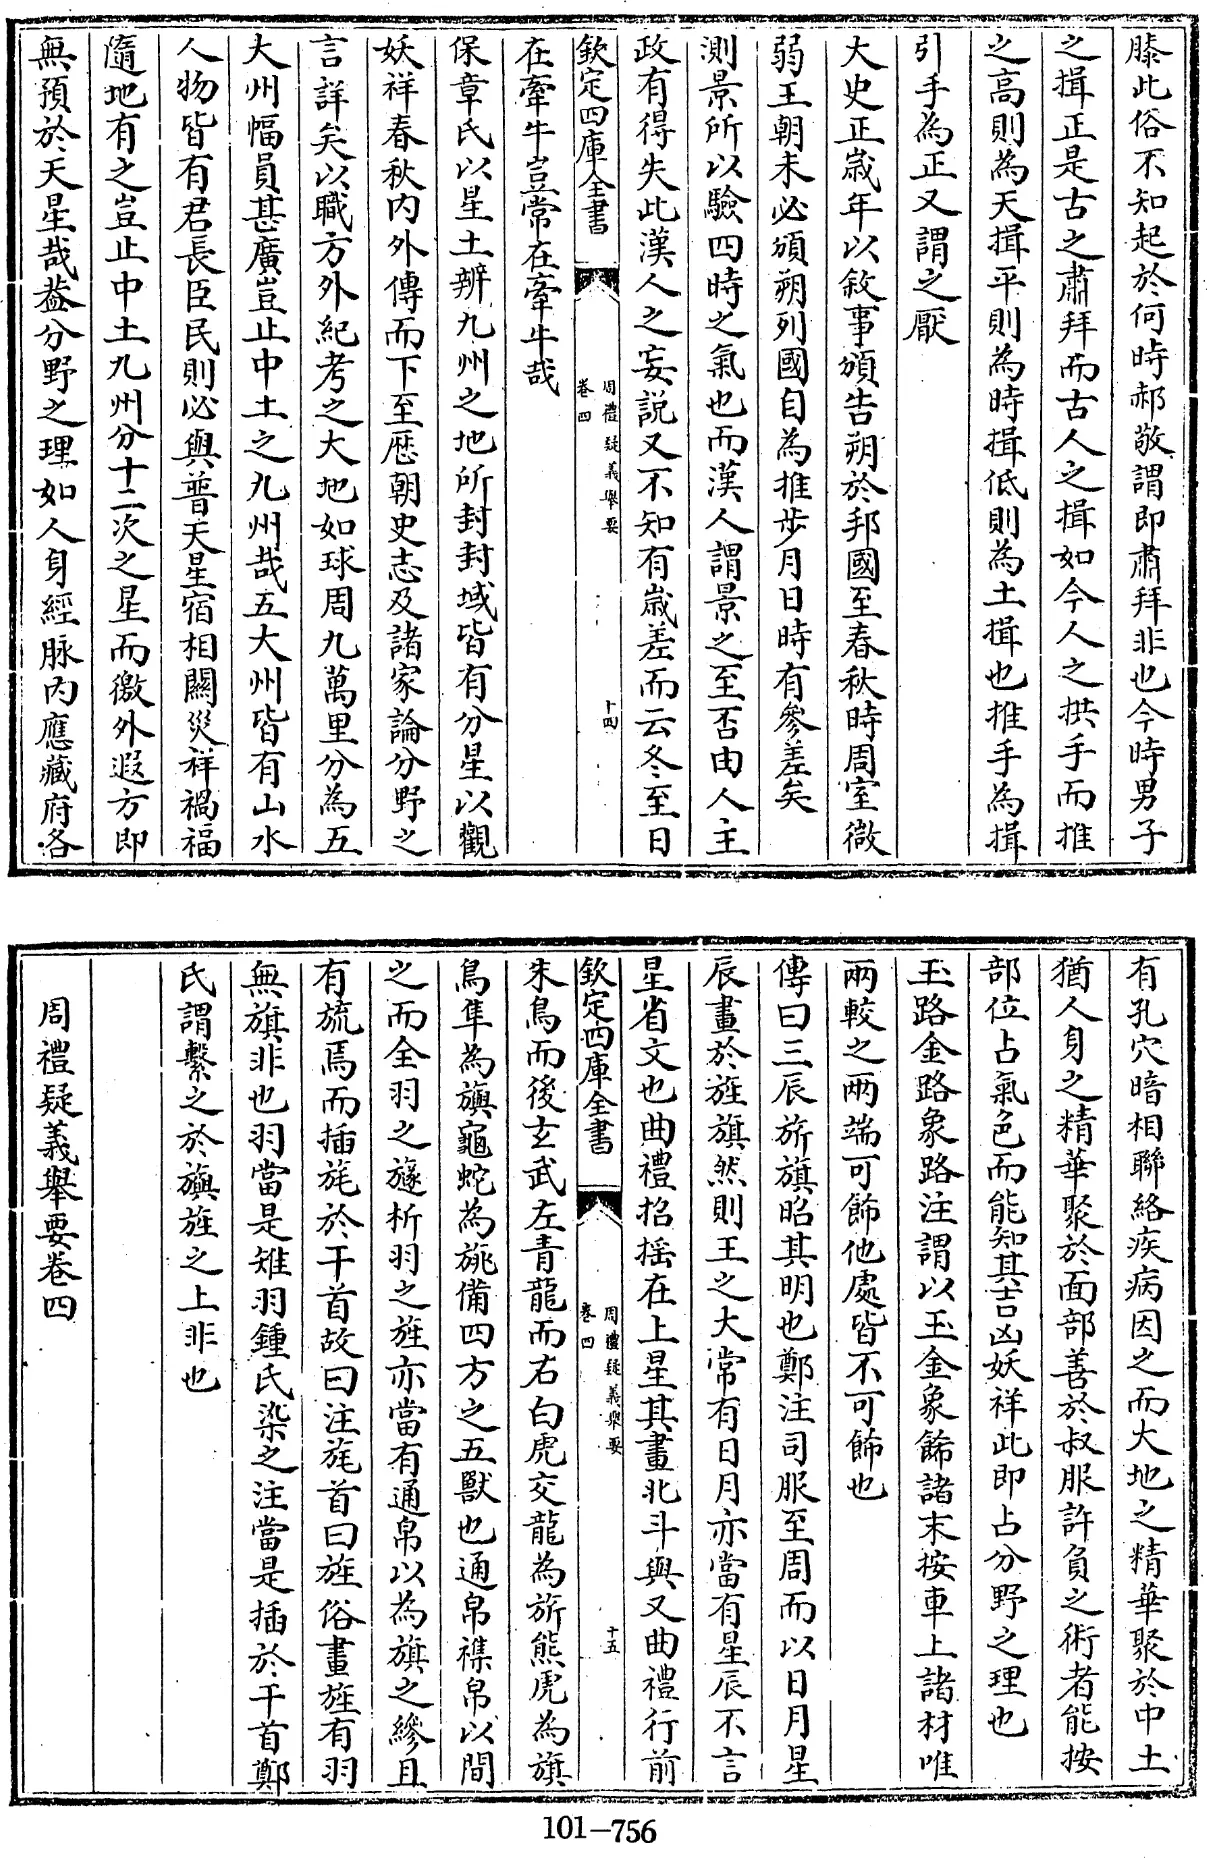 膝此俗不知起於何時郝敬謂即肅拜非也今時男子
之揖正是古之肅拜而古人之揖如今人之拱手而推
之高則為天揖平則為時揖低則為土揖也推手為揖
引手為正又謂之厭
大史正歲年以敘事頒告朔於邦國至春秋時周室微
弱王朝未必頒朔列國自為推步月日時有參差矣
測景所以驗四時之氣也而漢人謂景之至否由人主
政有得失此漢人之妄說又不知有歲差而云冬至日
欽定四庫全書
周禮疑義舉要
卷四
十四
在牽牛豈常在牽牛哉
保章氏以星土辨九州之地所封封域皆有分星以觀
妖祥春秋內外傳而下至歷朝史志及諸家論分野之
言詳矣以職方外紀考之大地如球周九萬里分為五
大州幅員甚廣豈止中土之九州哉五大州皆有山水
人物皆有君長臣民則必與普天星宿相關災祥禍福
隨地有之豈止中土九州分十二次之星而徼外遐方即
無預於天星哉葢分野之理如人身經脉內應藏府各
有孔穴暗相聯絡疾病因之而大地之精華聚於中土
猶人身之精華聚於面部善於叔服許負之術者能按
部位占氣色而能知其吉凶妖祥此即占分野之理也
玉路金路象路注謂以玉金象飾諸末按車上諸材唯
兩較之兩端可飾他處皆不可飾也
傳曰三辰旂旗昭其明也鄭注司服至周而以日月星
辰畫於旌旗然則王之大常有日月亦當有星辰不言
星省文也曲禮招揺在上星其畫北斗與又曲禮行前
欽定四庫全書
周禮疑義舉要
卷四
十五
朱鳥而後玄武左青龍而右白虎交龍為旂熊虎為旗
鳥隼為旟龜蛇為旐備四方之五獸也通帛襍帛以間
之而全羽之旞析羽之旌亦當有通帛以為旗之縿且
有旒焉而插旄於干首故曰注旄首曰旌俗畫旌有羽
無旗非也羽當是雉羽鍾氏染之注當是插於干首鄭
氏謂繫之於旟旌之上非也
周禮疑義舉要卷四
101-756